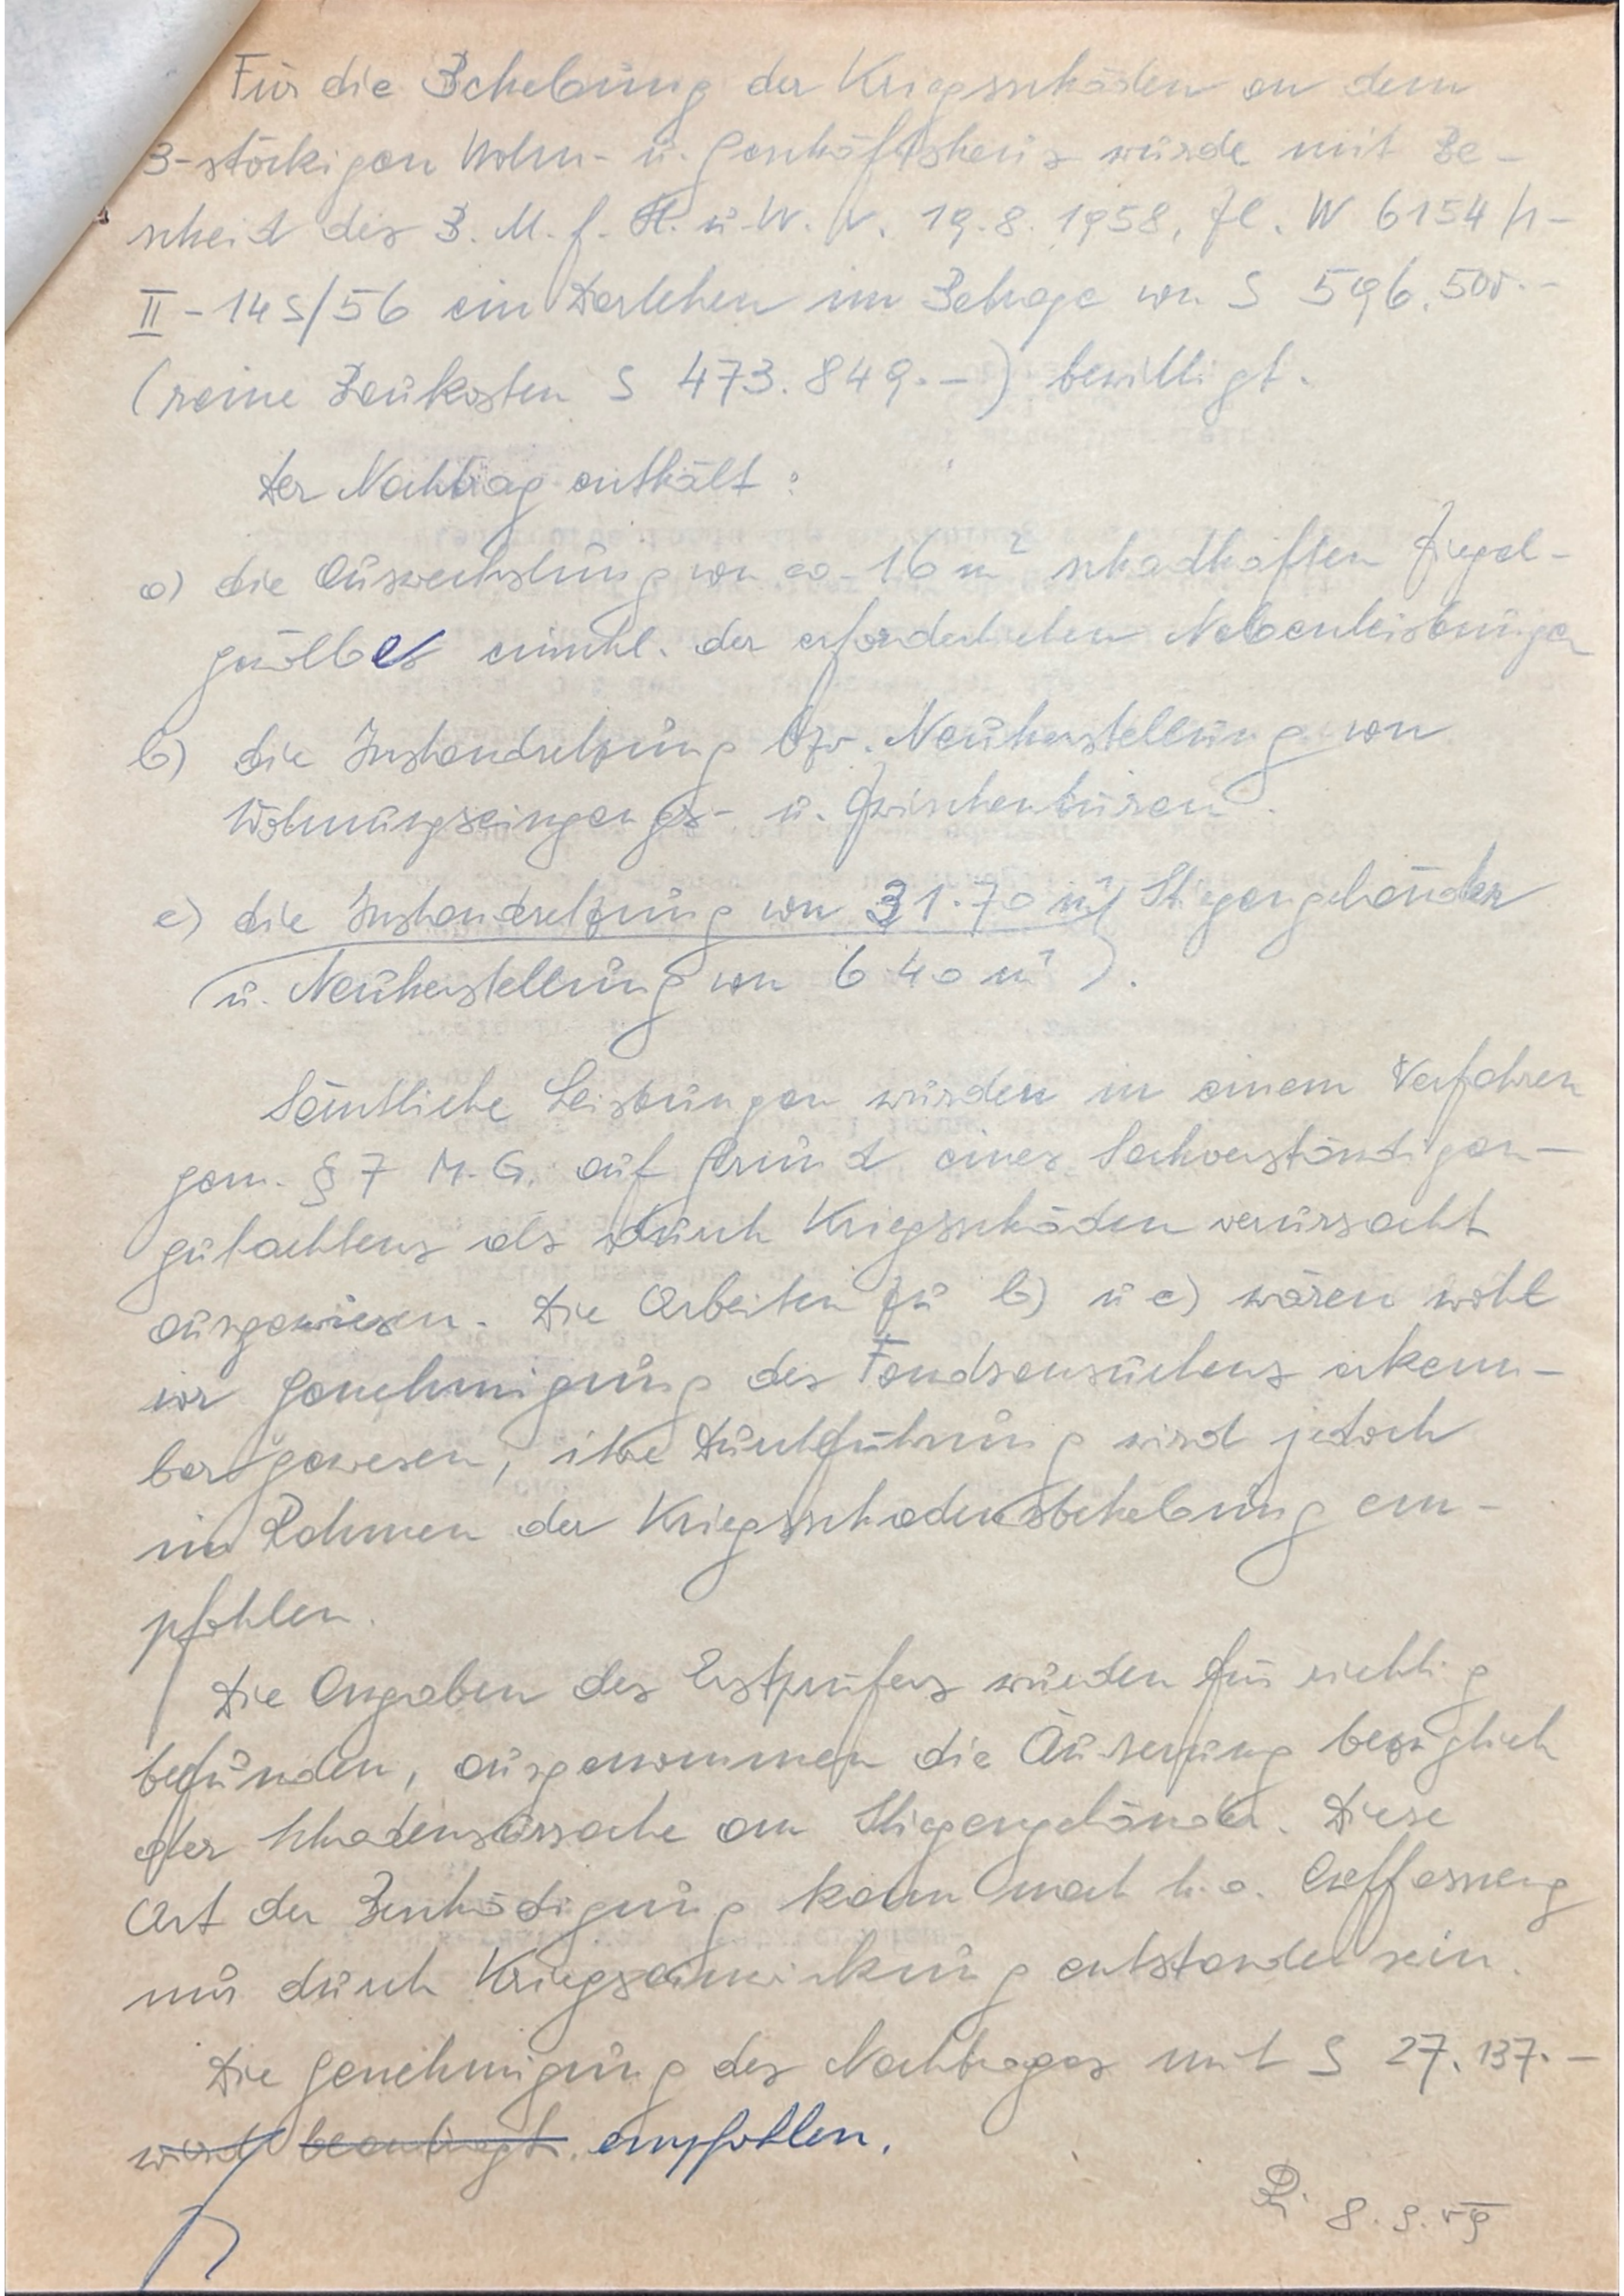 Für die Behebung der Kriegsschäden an dem
3-stöckigen Wohn- u. Geschäftshaus wurde mit Be-
scheid des B. M. f. H. u. W. v. 19.8.1958, Zl. W 6154/1-
II-14S/56 ein Darlehen im Betrage von S 596.500.-
(reine Baukosten S 473.849.-) bewilligt.
Der Nachtrag enthält:
a) die Auswechslung von ca. 16 m² schadhaften Ziegel-
gewölbes einschl. der erforderlichen Nebenleistungen
b) die Instandsetzung bzw. Neuherstellung von
Wohnungseingangs- u. Zwischentüren.
c) die Instandsetzung von 31.70 m¹ Stiegengeländer
(u. Neuherstellung von 6.40 m¹).
Sämtliche Leistungen wurden in einem Verfahren
gem. § 7 M.G. auf Grund eines Sachverständigen-
gutachtens als durch Kriegsschäden verursacht
ausgewiesen. Die Arbeiten zu b) u c) wären wohl
vor Genehmigung des Fondsansuchens erkenn-
bar gewesen, ihre Durchführung wird jedoch
im Rahmen der Kriegsschadensbehebung em-
pfohlen.
Die Angaben des Erstprüfers wurden für richtig
befunden, ausgenommen die Äusserung bezüglich
der Schadensursache am Stiegengeländer. Diese
Art der Beschädigung kann nach h.o. Auffassung
nur durch Kriegseinwirkung entstanden sein.
Die Genehmigung des Nachtrages mit S 27.137.-
wird beantragt empfohlen.
8.9.59